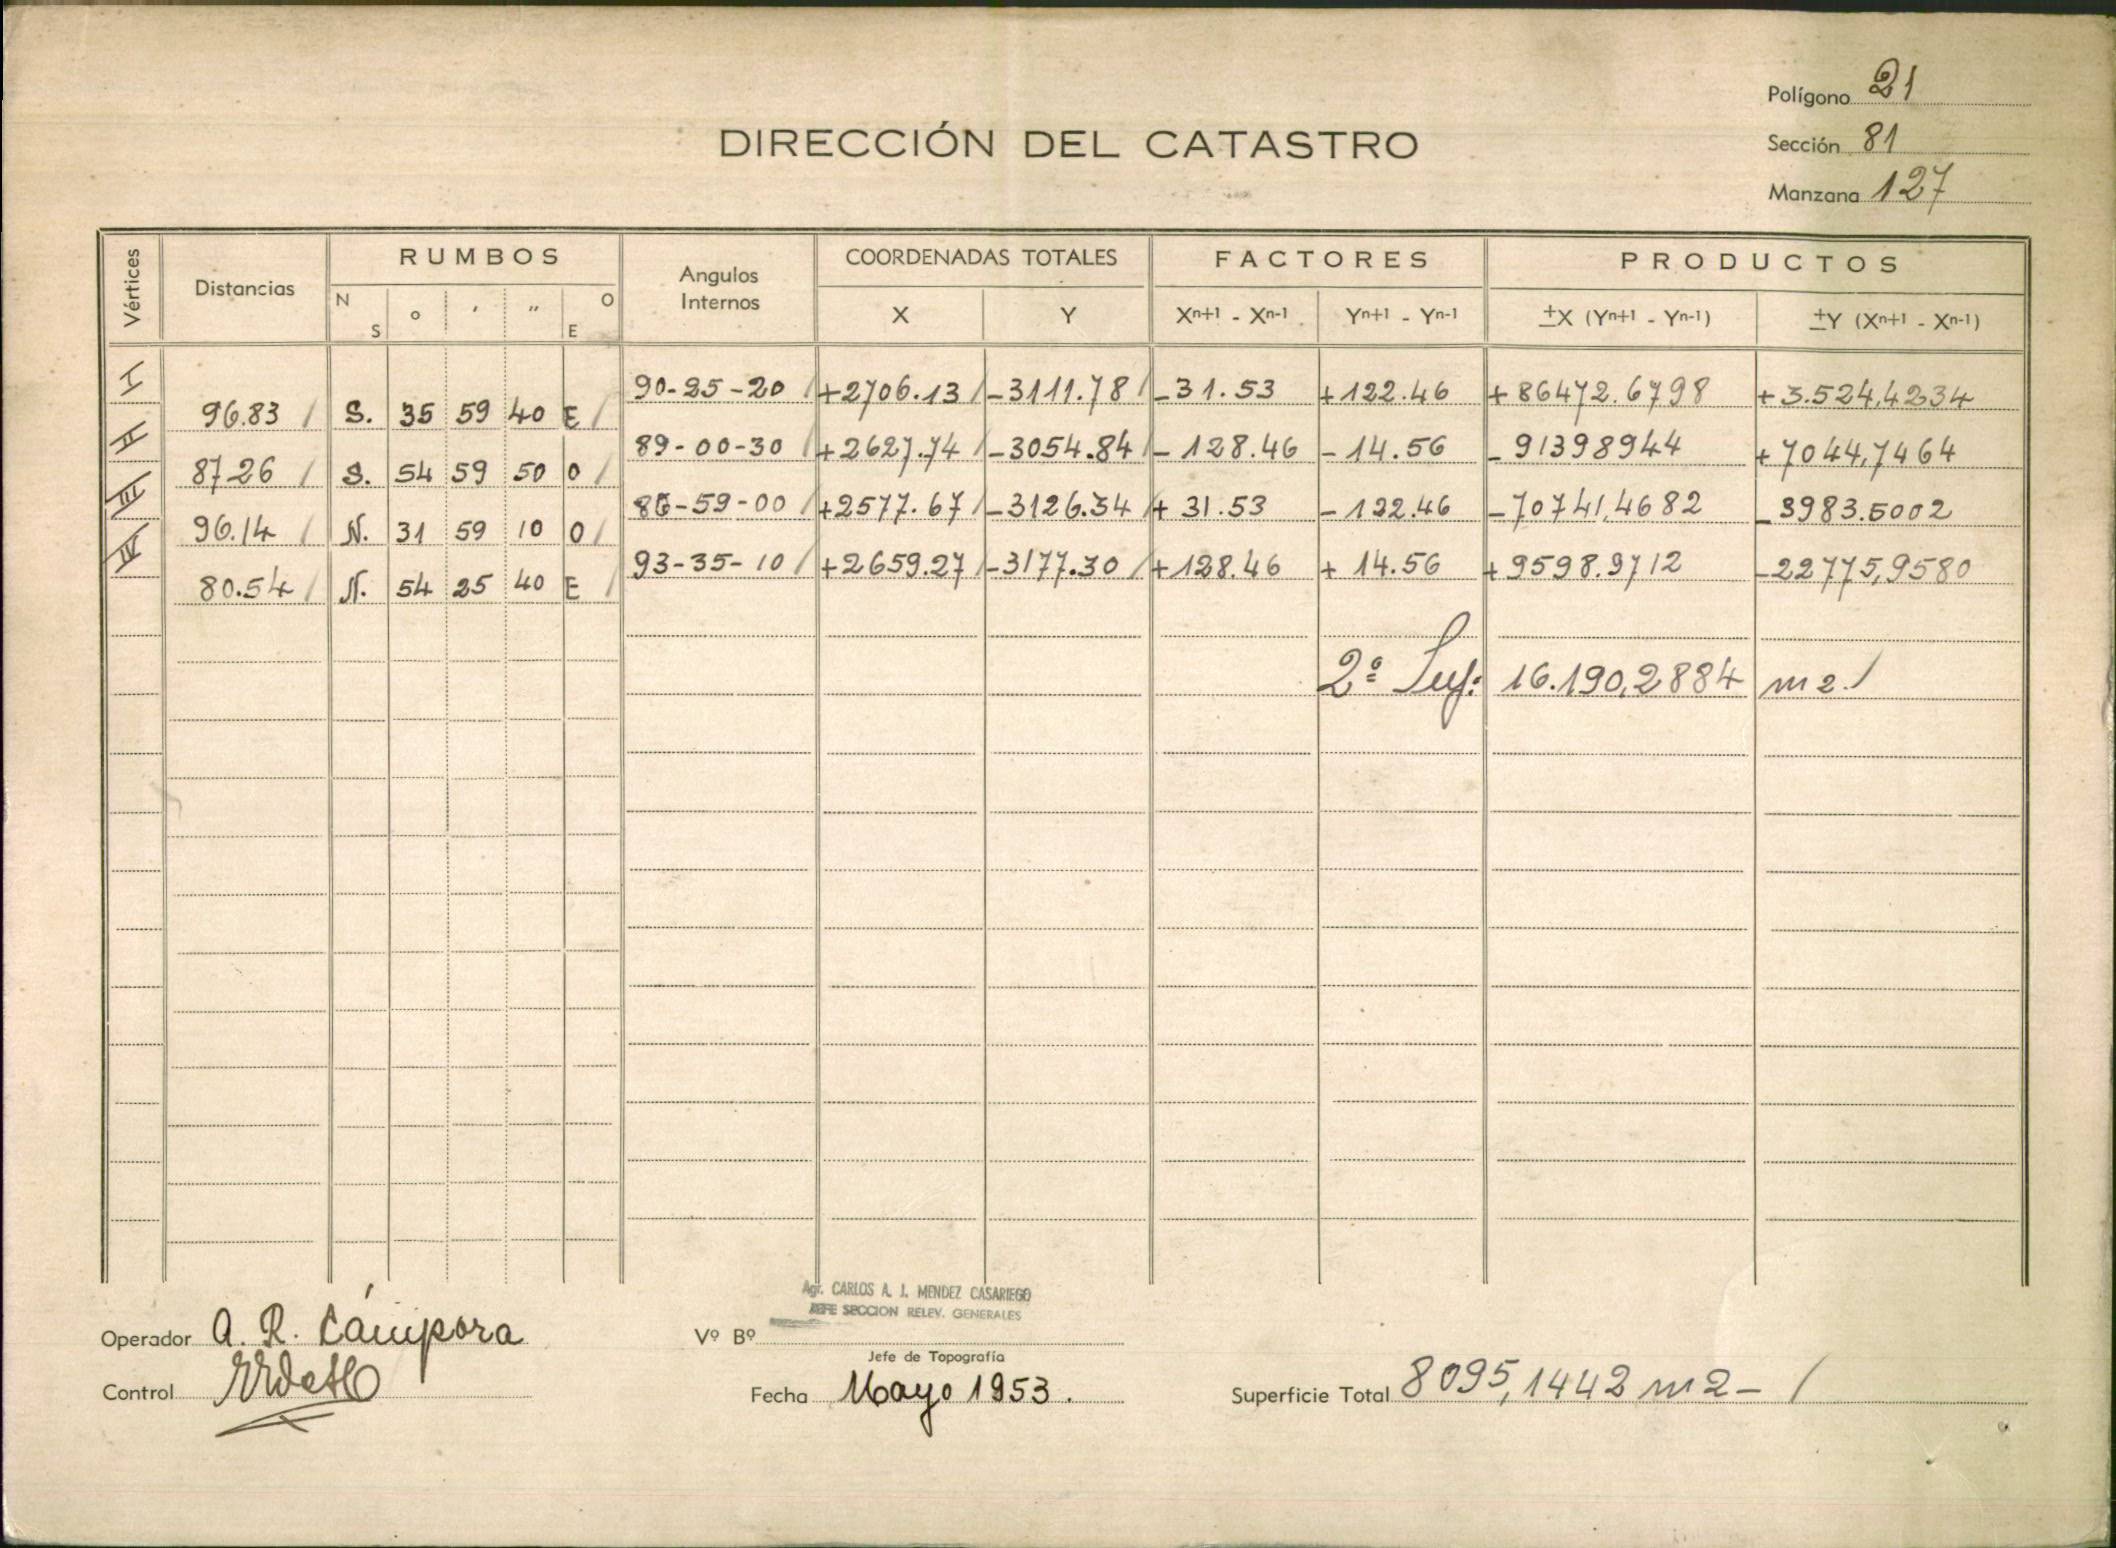 Polígono 21
DIRECCIÓN DEL CATASTRO
Sección 81
Manzana 127
Vértices Distancias RUMBOS Angulos Internos COORDENADAS TOTALES FACTORES PRODUCTOS
N S ° ' " O E X Y Xn+1 - Xn-1 Yn+1 - Yn-1 ±X (Yn+1 - Yn-1) ±Y (Xn+1 - Xn-1)
I 90-25-20 / +2706.13 / -3111.78 / -31.53 +122.46 +86472.6798 +3.524,4234
96.83 / S. 35 59 40 E /
II 89-00-30 / +2627.74 / -3054.84 / -128.46 -14.56 -91398944 +7044,7464
87.26 / S. 54 59 50 O /
III 86-59-00 / +2577.67 / -3126.34 / +31.53 -122.46 -70741,4682 -3983.5002
96.14 / N. 31 59 10 O /
IV 93-35-10 / +2659.27 / -3177.30 / +128.46 +14.56 +9598.9712 -22775,9580
80.54 / N. 54 25 40 E /
2ª Sup: 16.190,2884 m2. /
Agr. CARLOS A. J. MENDEZ CASARIEGO
JEFE SECCION RELEV. GENERALES
Operador A. R. Cámpora Vº Bº
Jefe de Topografía
Control Fecha Mayo 1953. Superficie Total 8095,1442 m2 - /